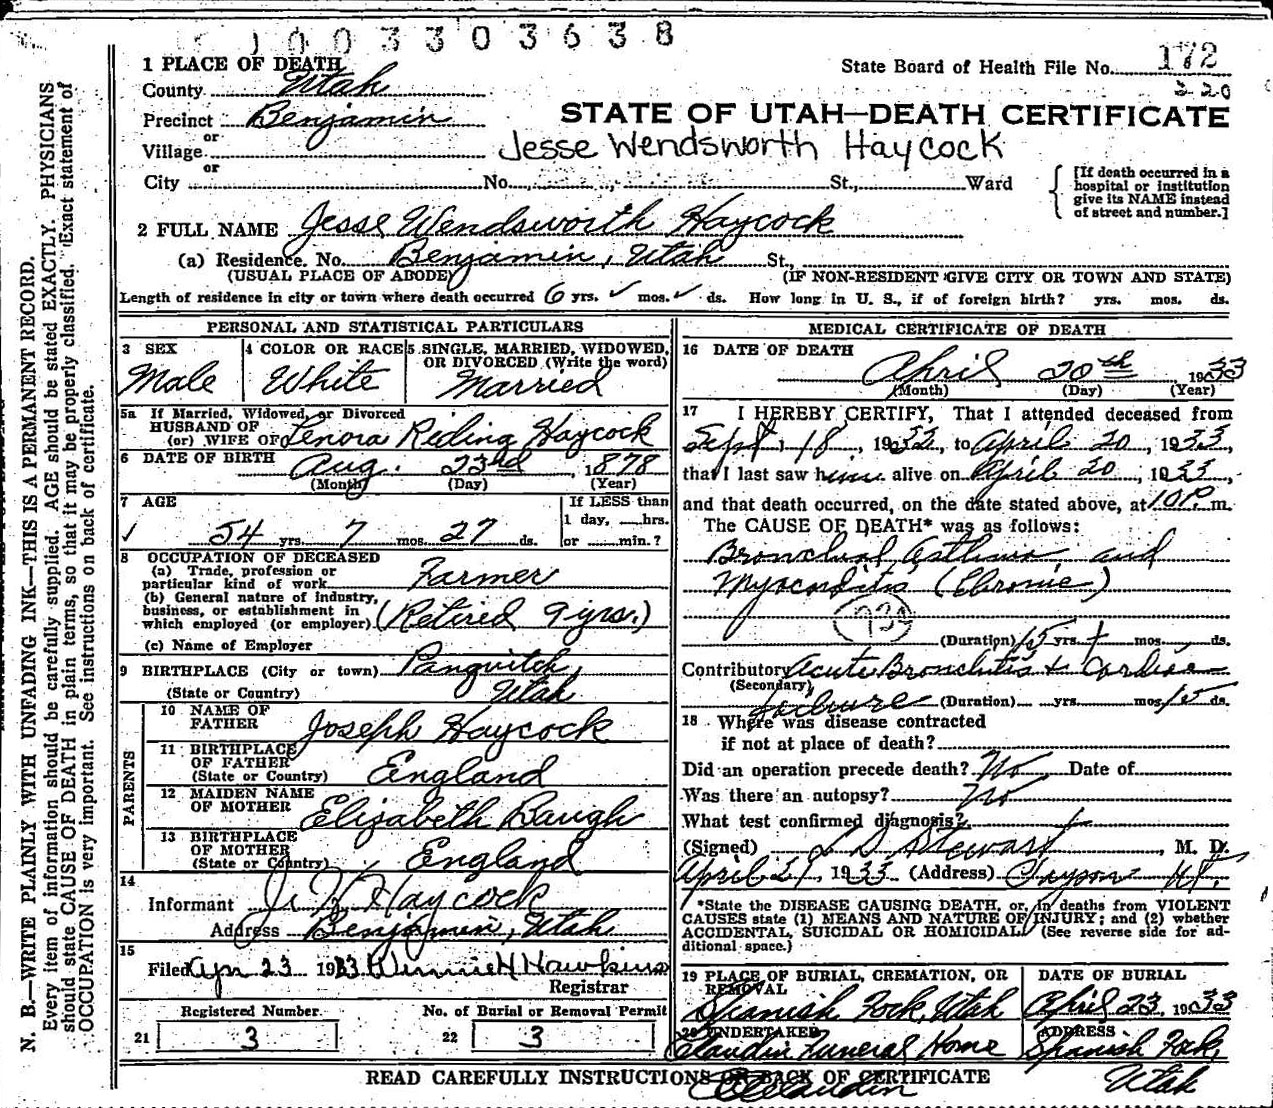 1003303638
1 PLACE OF DEATH
County Utah
Precinct Benjamin
or
Village
or
City No. St., Ward
State Board of Health File No. 172
320
STATE OF UTAH—DEATH CERTIFICATE
Jesse Wendsworth Haycock
[If death occurred in a
hospital or institution
give its NAME instead
of street and number.]
2 FULL NAME Jesse Wendsworth Haycock
(a) Residence. No. Benjamin, Utah St.,
(USUAL PLACE OF ABODE) (IF NON-RESIDENT GIVE CITY OR TOWN AND STATE)
Length of residence in city or town where death occurred 6 yrs. ✓ mos. ✓ ds. How long in U. S., if of foreign birth? yrs. mos. ds.
N. B.—WRITE PLAINLY WITH UNFADING INK—THIS IS A PERMANENT RECORD.
Every item of information should be carefully supplied. AGE should be stated EXACTLY. PHYSICIANS
should state CAUSE OF DEATH in plain terms, so that it may be properly classified. Exact statement of
OCCUPATION is very important. See instructions on back of certificate.
PERSONAL AND STATISTICAL PARTICULARS
3 SEX
Male
4 COLOR OR RACE
White
5 SINGLE, MARRIED, WIDOWED,
OR DIVORCED (Write the word)
Married
5a If Married, Widowed, or Divorced
HUSBAND OF
(or) WIFE OF Lenora Reding Haycock
6 DATE OF BIRTH
Aug. 23rd, 1878
(Month) (Day) (Year)
7 AGE
✓ 54 yrs. 7 mos. 27 ds.
If LESS than
1 day, hrs.
or min.?
8 OCCUPATION OF DECEASED
(a) Trade, profession or
particular kind of work Farmer
(b) General nature of industry,
business, or establishment in
which employed (or employer) (Retired 9 yrs.)
(c) Name of Employer
9 BIRTHPLACE (City or town) Panguitch,
(State or Country) Utah
PARENTS
10 NAME OF
FATHER Joseph Haycock
11 BIRTHPLACE
OF FATHER
(State or Country) England
12 MAIDEN NAME
OF MOTHER Elizabeth Baugh
13 BIRTHPLACE
OF MOTHER
(State or Country) England
14
Informant Haycock
Address Benjamin, Utah
15
Filed Apr 23 1933 Winnie H Hawkins
Registrar
Registered Number. No. of Burial or Removal Permit
21 3 22 3
MEDICAL CERTIFICATE OF DEATH
16 DATE OF DEATH
April 20th 1933
(Month) (Day) (Year)
17 I HEREBY CERTIFY, That I attended deceased from
Sept 18, 1932, to April 20, 1933,
that I last saw him alive on April 20, 1933,
and that death occurred, on the date stated above, at 10 P. m.
The CAUSE OF DEATH* was as follows:
Bronchial Asthma and
Myocarditis (Chronic)
(Duration) 15 yrs. + mos. ds.
Contributory Acute Bronchitis + Cardiac
(Secondary)
failure (Duration) yrs. mos. 15 ds.
18 Where was disease contracted
if not at place of death?
Did an operation precede death? No Date of
Was there an autopsy? No
What test confirmed diagnosis?
(Signed) L D Stewart, M. D.
April 21 1933 (Address) Payson Ut.
*State the DISEASE CAUSING DEATH, or, in deaths from VIOLENT
CAUSES state (1) MEANS AND NATURE OF INJURY; and (2) whether
ACCIDENTAL, SUICIDAL OR HOMICIDAL. (See reverse side for ad-
ditional space.)
19 PLACE OF BURIAL, CREMATION, OR
REMOVAL
Spanish Fork, Utah
DATE OF BURIAL
April 23, 1933
20 UNDERTAKER
Claudin Funeral Home
ADDRESS
Spanish Fork,
Utah
READ CAREFULLY INSTRUCTIONS ON BACK OF CERTIFICATE